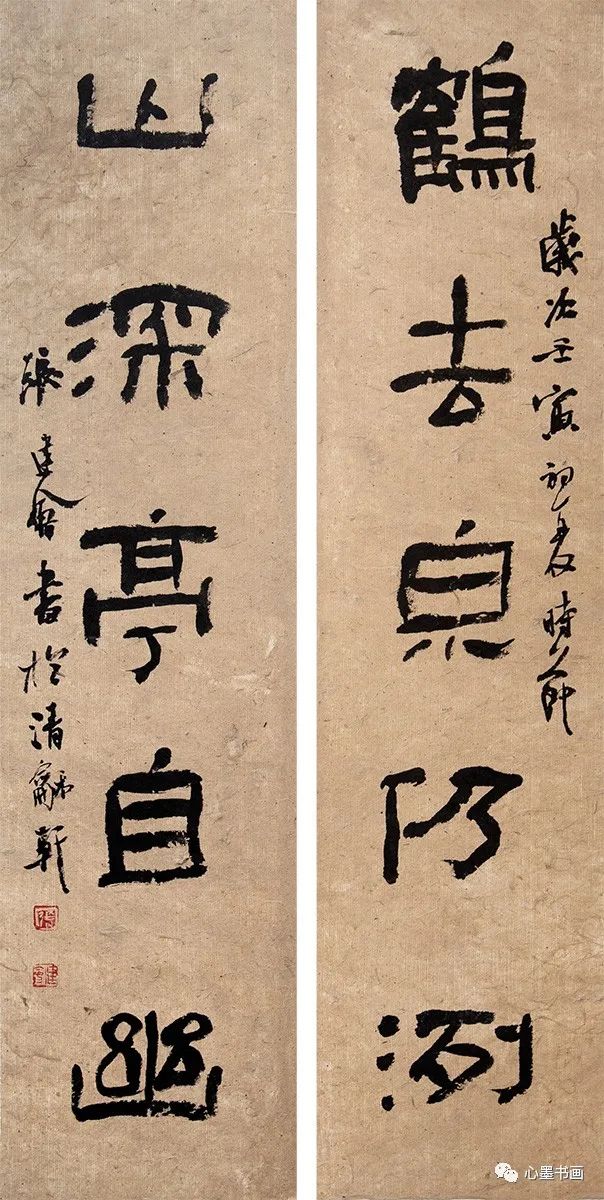 歲次壬寅初夏時節
鶴去泉仍洌
山深亭自幽
張建會書於清龢軒
心墨书画